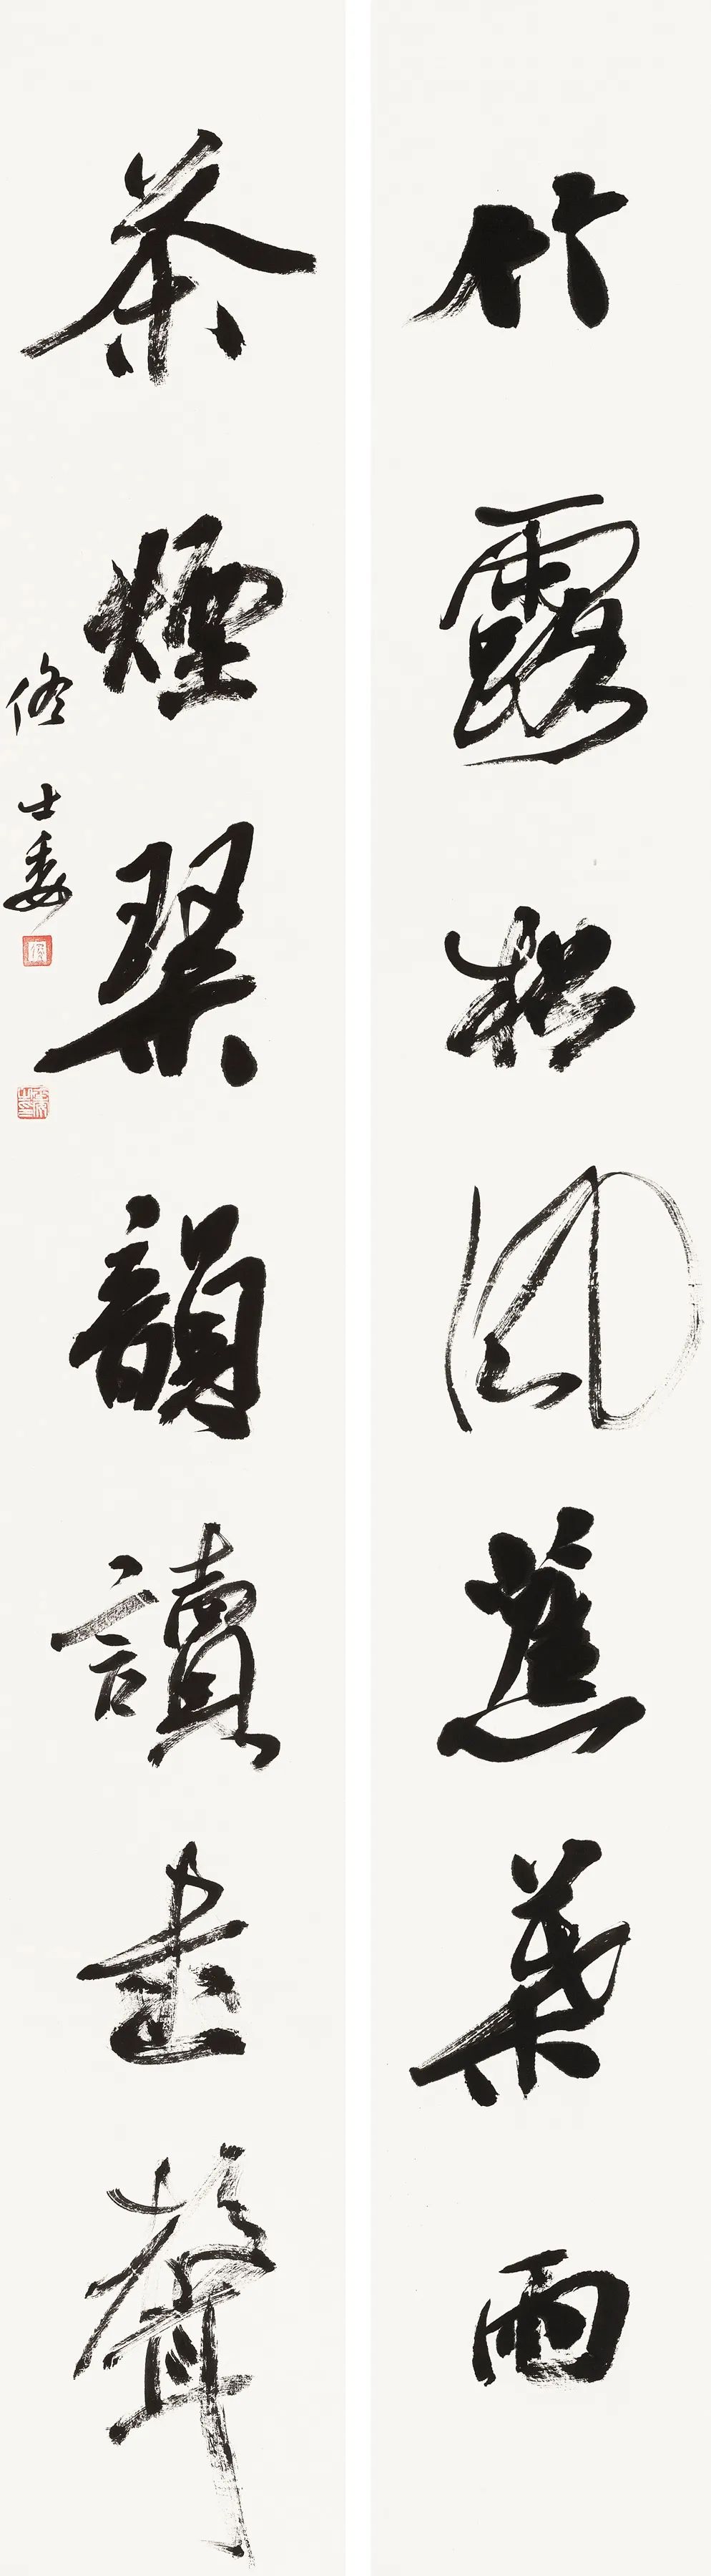 竹露松風蕉葉雨
茶煙琴韻讀書聲
佟士委